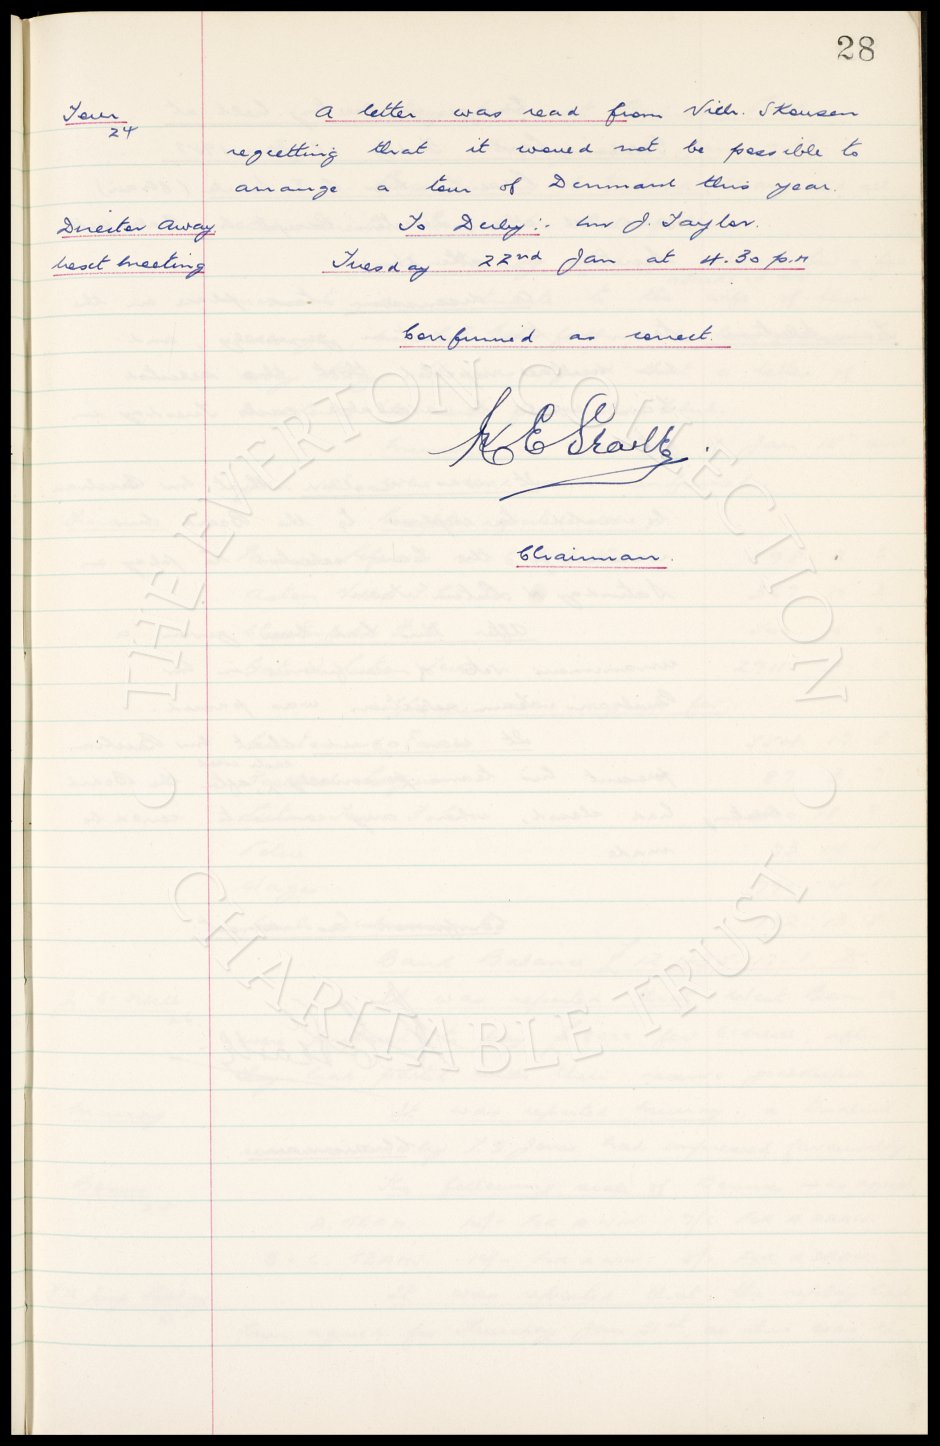 28
Tour A letter was read from Vilh. Skousen
24
regretting that it would not be possible to
arrange a tour of Denmark this year.
Director Away To Derby:- Mr J. Taylor.
Next Meeting Tuesday 22nd Jan at 4.30 p.m
Confirmed as correct.
E
Chairman.
THE EVERTON COLLECTION
CHARITABLE TRUST